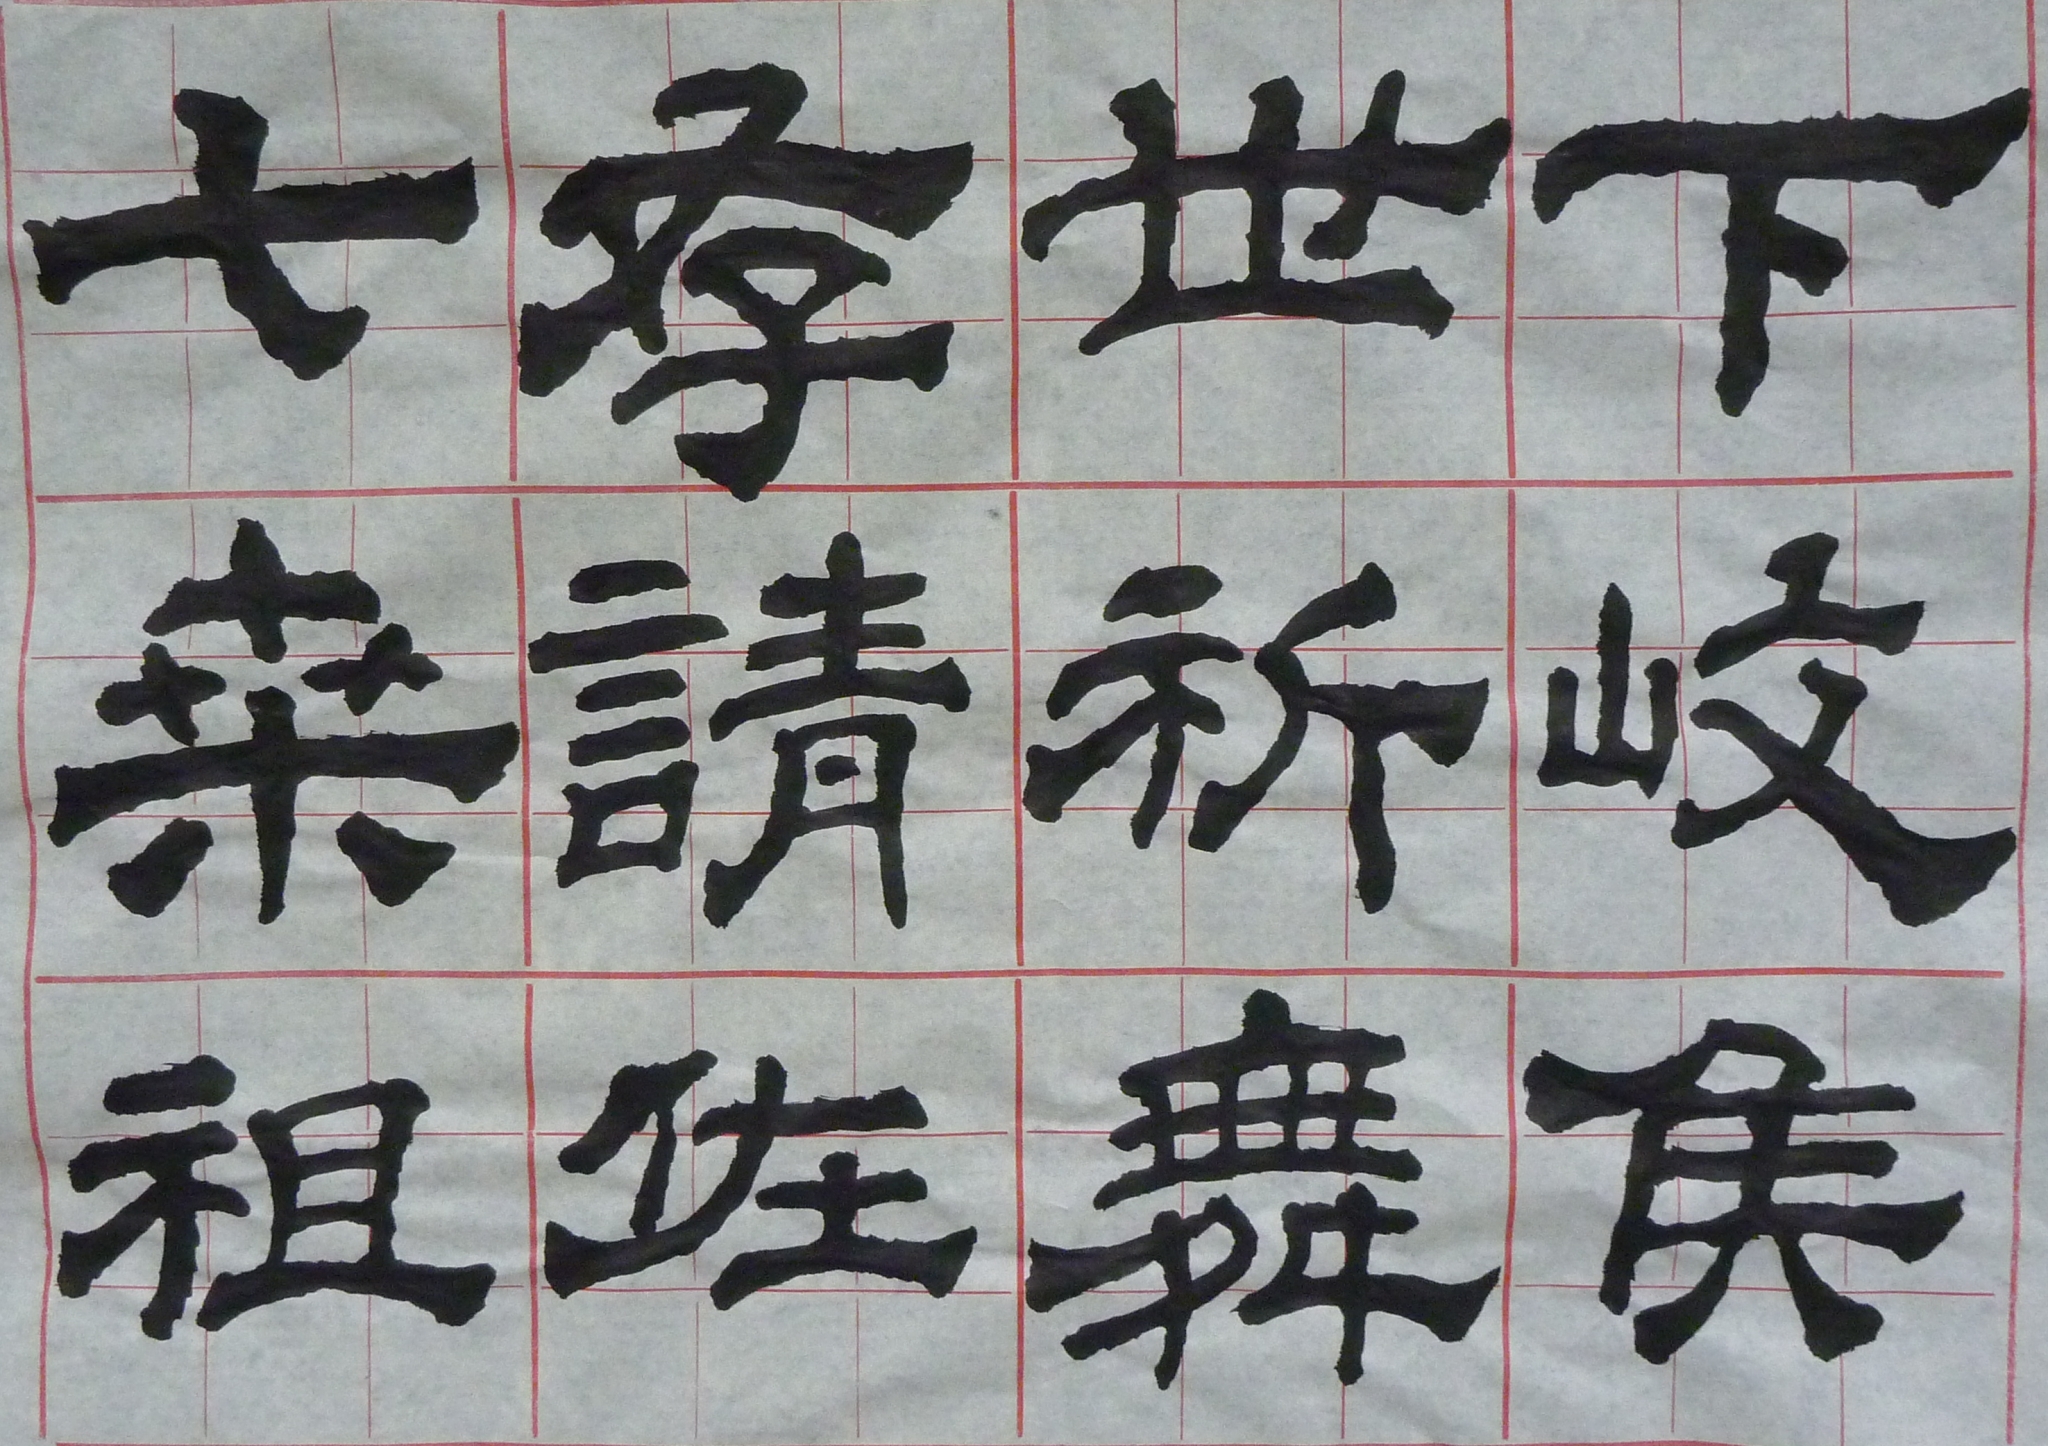 下岐
世祈舞
存請佐
七桑祖